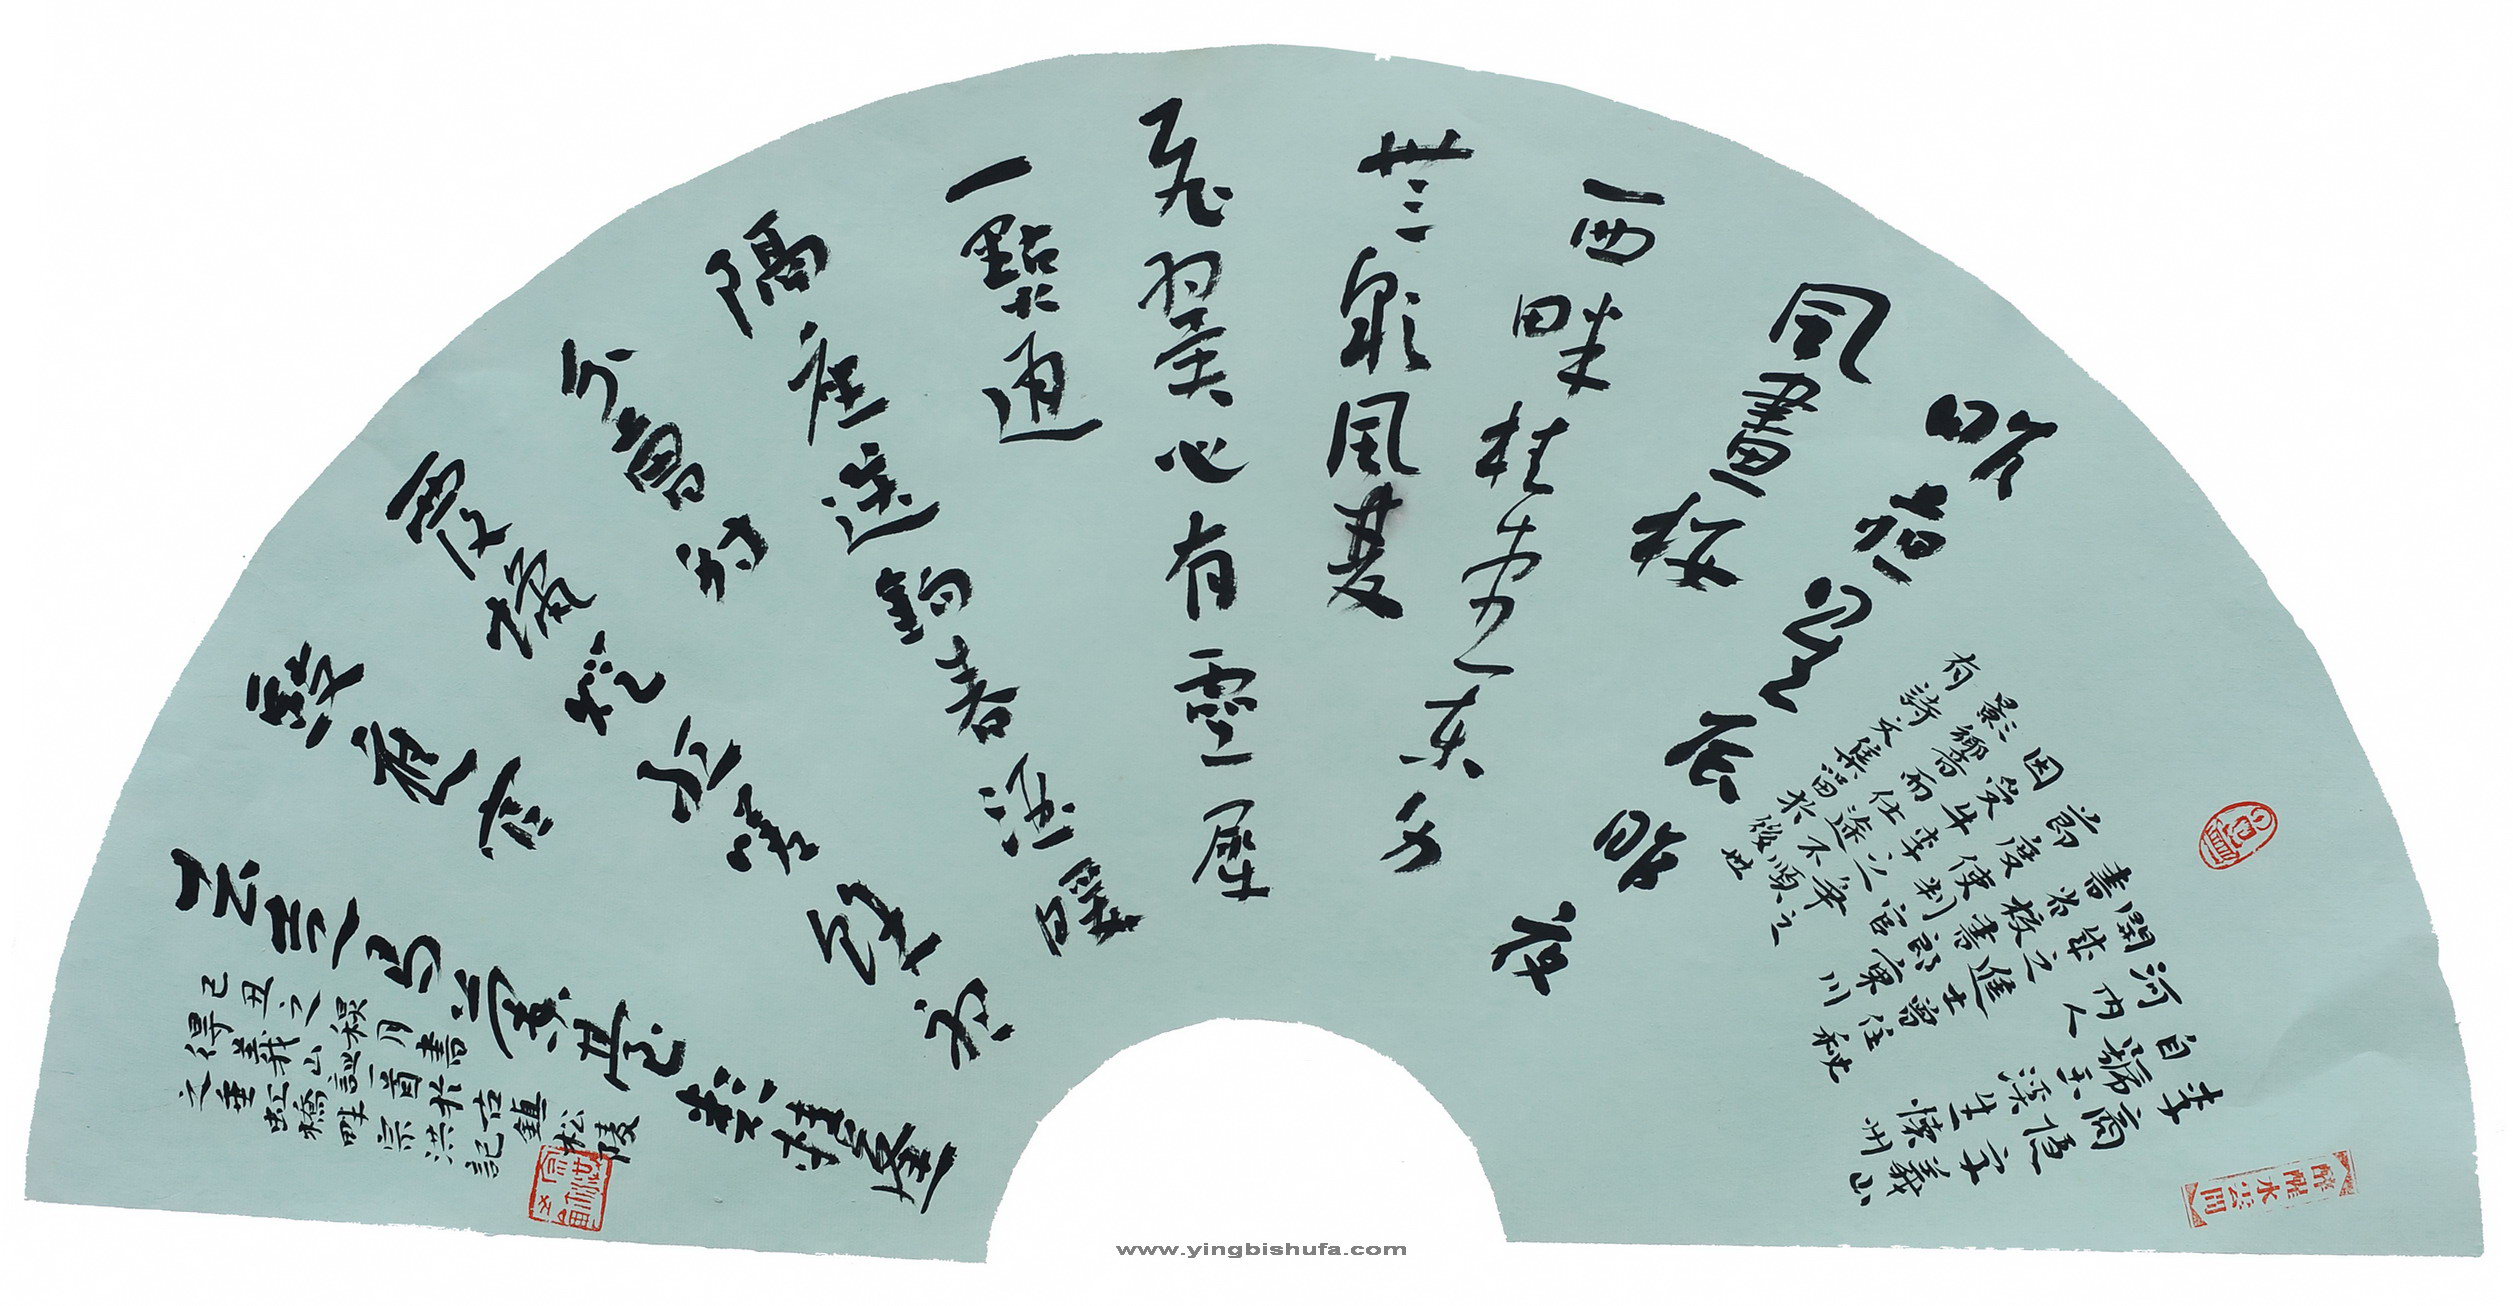 昨夜星辰昨夜
風畫樓
西畔桂堂東身
無彩鳳雙
飛翼心有靈犀
一點通
隔座送鈎春酒暖
分曹射
覆蠟燈紅嗟余聽
鼓應官
去走馬蘭臺類轉蓬
李商隱字義山
自號玉溪生懷州
河內人
開成之進士曾住秘
書省校書郎
節度使判官
因受牛李
影響而仕途不順
有詩文集留於後世
己丑之穐月書於古鎮松陵
得義山詩一首宗洪記
之垂虹橋畔
www.yingbishufa.com